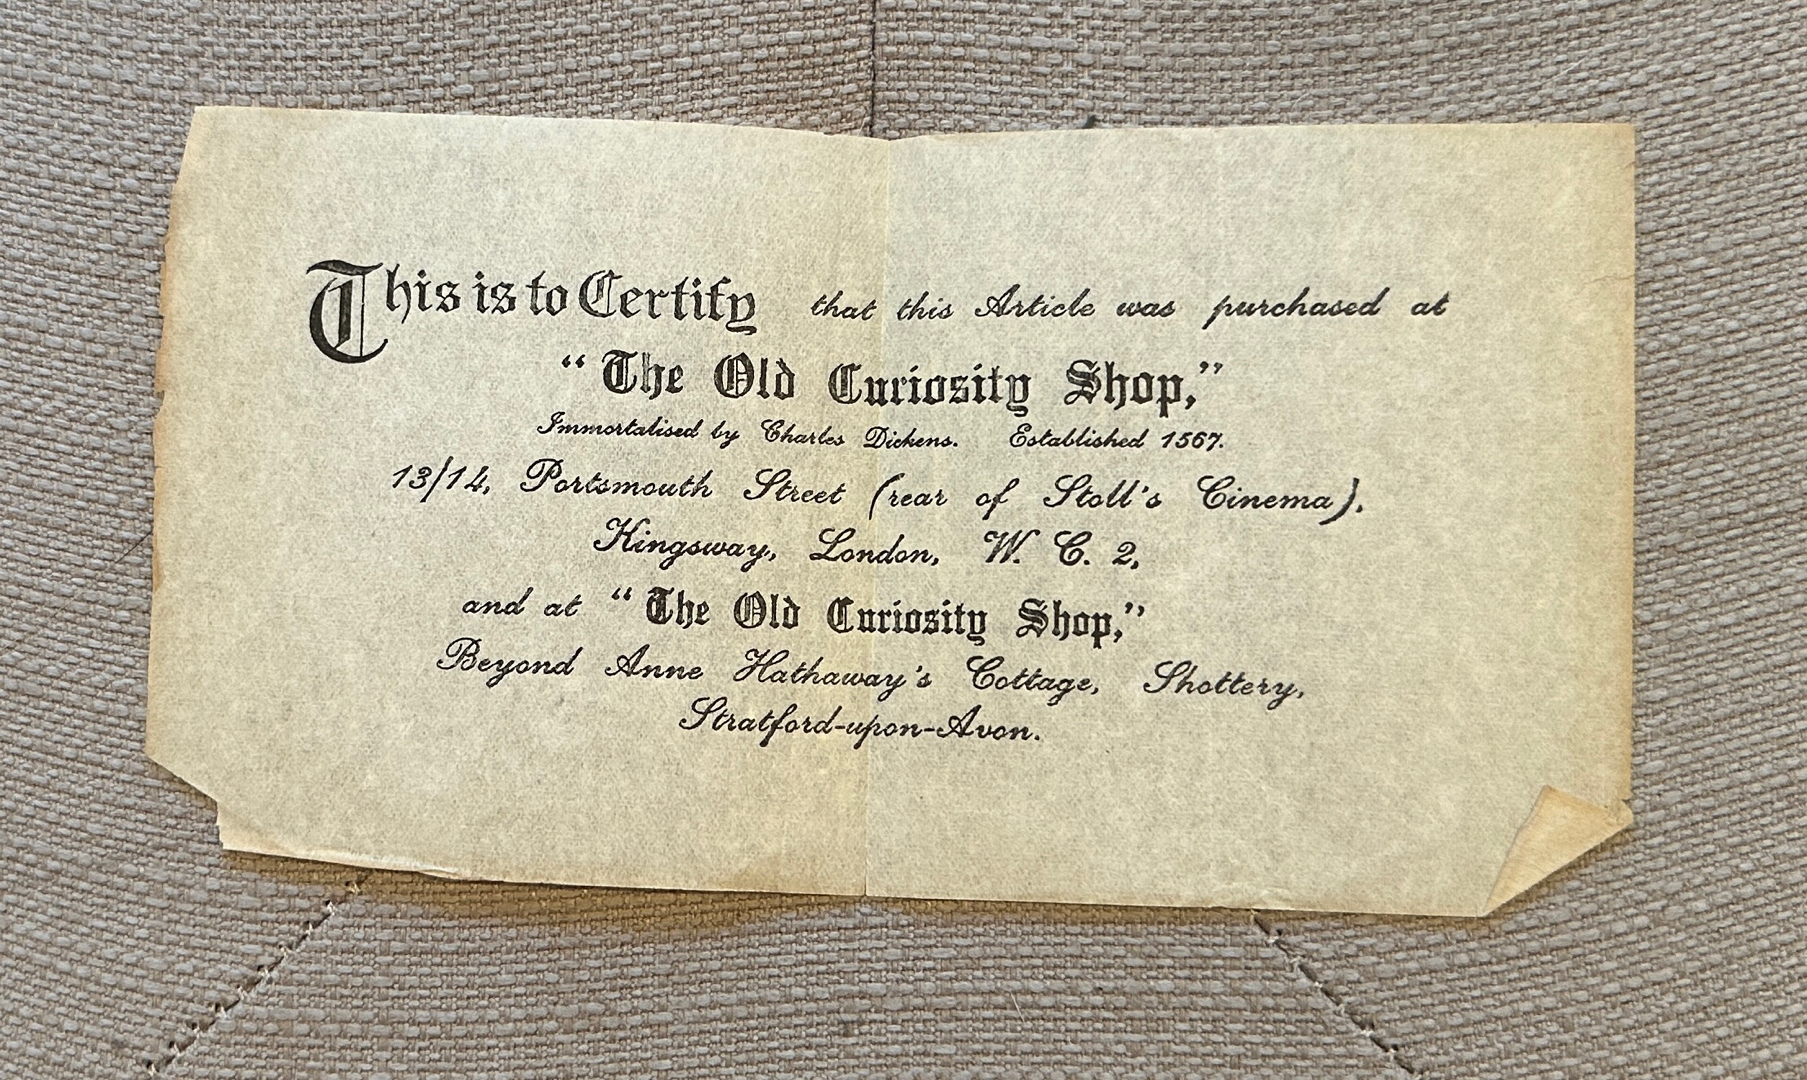 This is to Certify that this Article was purchased at
“The Old Curiosity Shop,”
Immortalised by Charles Dickens. Established 1567.
13/14, Portsmouth Street (rear of Stoll's Cinema),
Kingsway, London, W. C. 2,
and at “The Old Curiosity Shop,”
Beyond Anne Hathaway's Cottage, Shottery,
Stratford-upon-Avon.